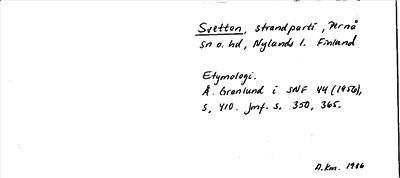 Svetton, strandparti, Pernå
sn o. hd, Nylands l. Finland
Etymologi.
Å. Granlund i SNF 44 (1956),
s, 410. Jmf. s. 350, 365.
A.Km. 1986